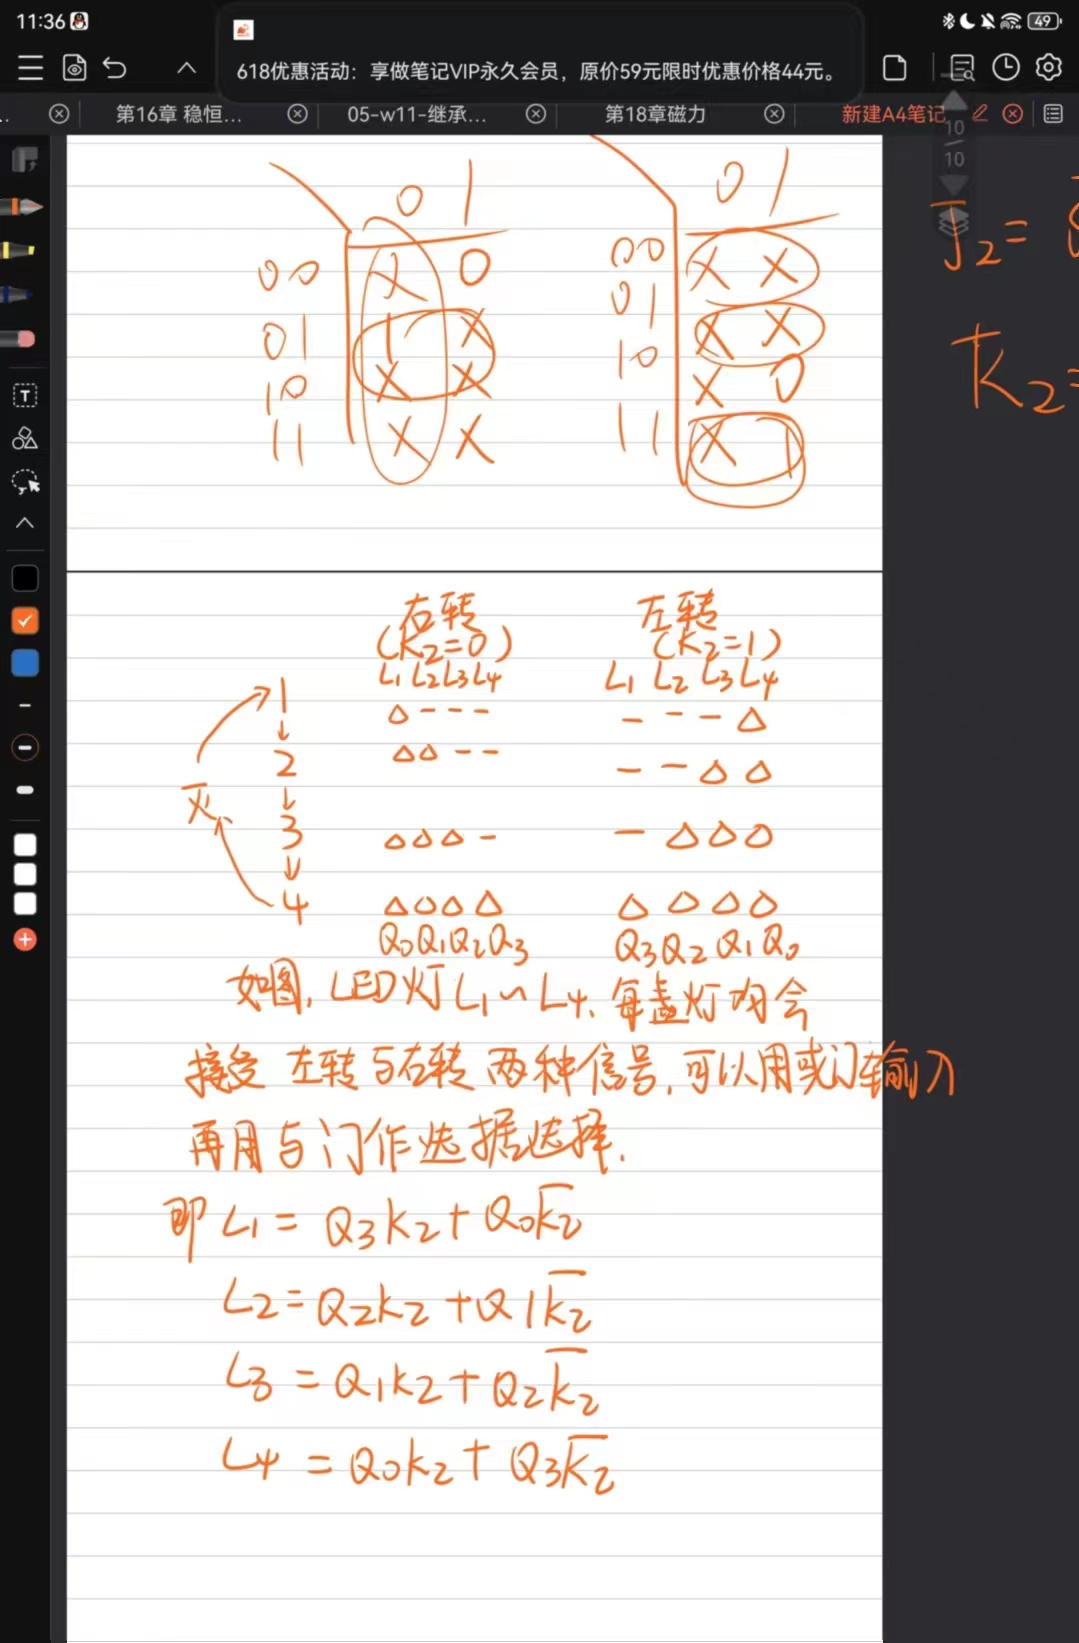 11:36
49
618优惠活动：享做笔记VIP永久会员，原价59元限时优惠价格44元。
第16章 稳恒...
05-w11-继承...
第18章磁力
新建A4笔记
10
10
0 1
00 X 0
01 1 X
10 X X
11 X X
0 1
00 X X
01 X X
10 X 0
11 X 1
J2=
K2=
右转
(K2=0)
L1 L2 L3 L4
左转
(K2=1)
L1 L2 L3 L4
1 △ - - - - - - △
2 △△ - - - - △ △
灭
3 △△△ - - △△△
4 △△△△ △△△△
Q0Q1Q2Q3 Q3Q2Q1Q0
如图，LED灯L1~L4，每盏灯均会
接受左转与右转两种信号，可以用或门输入
再用与门作选择.
即L1=Q3K2+Q0K̅2̅
L2=Q2K2+Q1K̅2̅
L3=Q1K2+Q2K̅2̅
L4=Q0K2+Q3K̅2̅